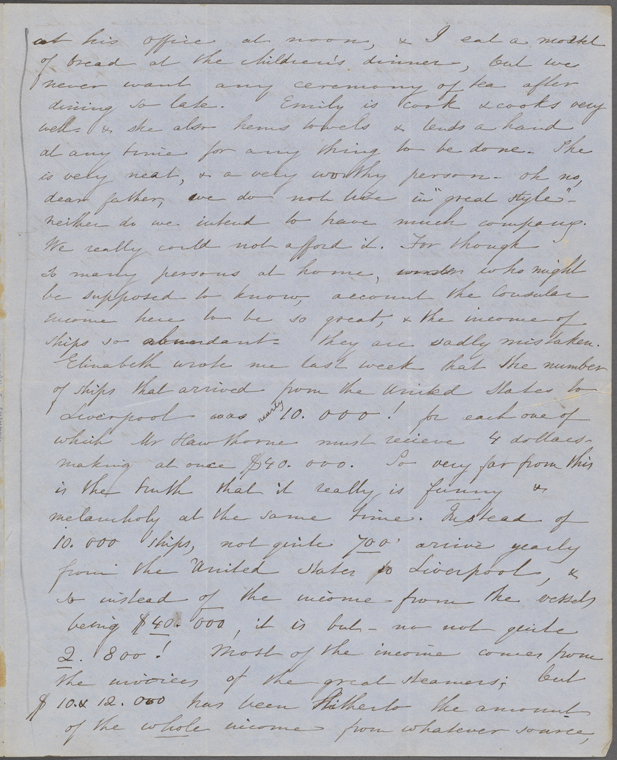 at his office at noon, & I eat a morsel
of bread at the children's dinner, but we
never want any ceremony of tea after
dining so late. Emily is cook & cooks very
well & she also hems towels & lends a hand
at any time for any thing to be done. She
is very neat, & a very worthy person. Oh no,
dear father, we do not live in "great style"-
neither do we intend to have much company.
We really could not afford it. For though
so many persons at home, who might
be supposed to know, account the Consular
income here to be so great, & the income of
ships so abundant- they are sadly mistaken.
Elizabeth wrote me last week that the number
of ships that arrived from the United States to
Liverpool was nearly 10.000! for each one of
which Mr Hawthorne must recieve 4 dollars-
making at once $40.000. So very far from this
is the truth that it really is funny &
melancholy at the same time. Instead of
10.000 ships, not quite 700 arrive yearly
from the United States to Liverpool, &
so instead of the income from the vessels
being $40.000, it is but - no not quite
2.800! Most of the income comes from
the invoices of the great steamers; but
$10 & 12.000 has been hitherto the amount
of the whole income from whatever source,